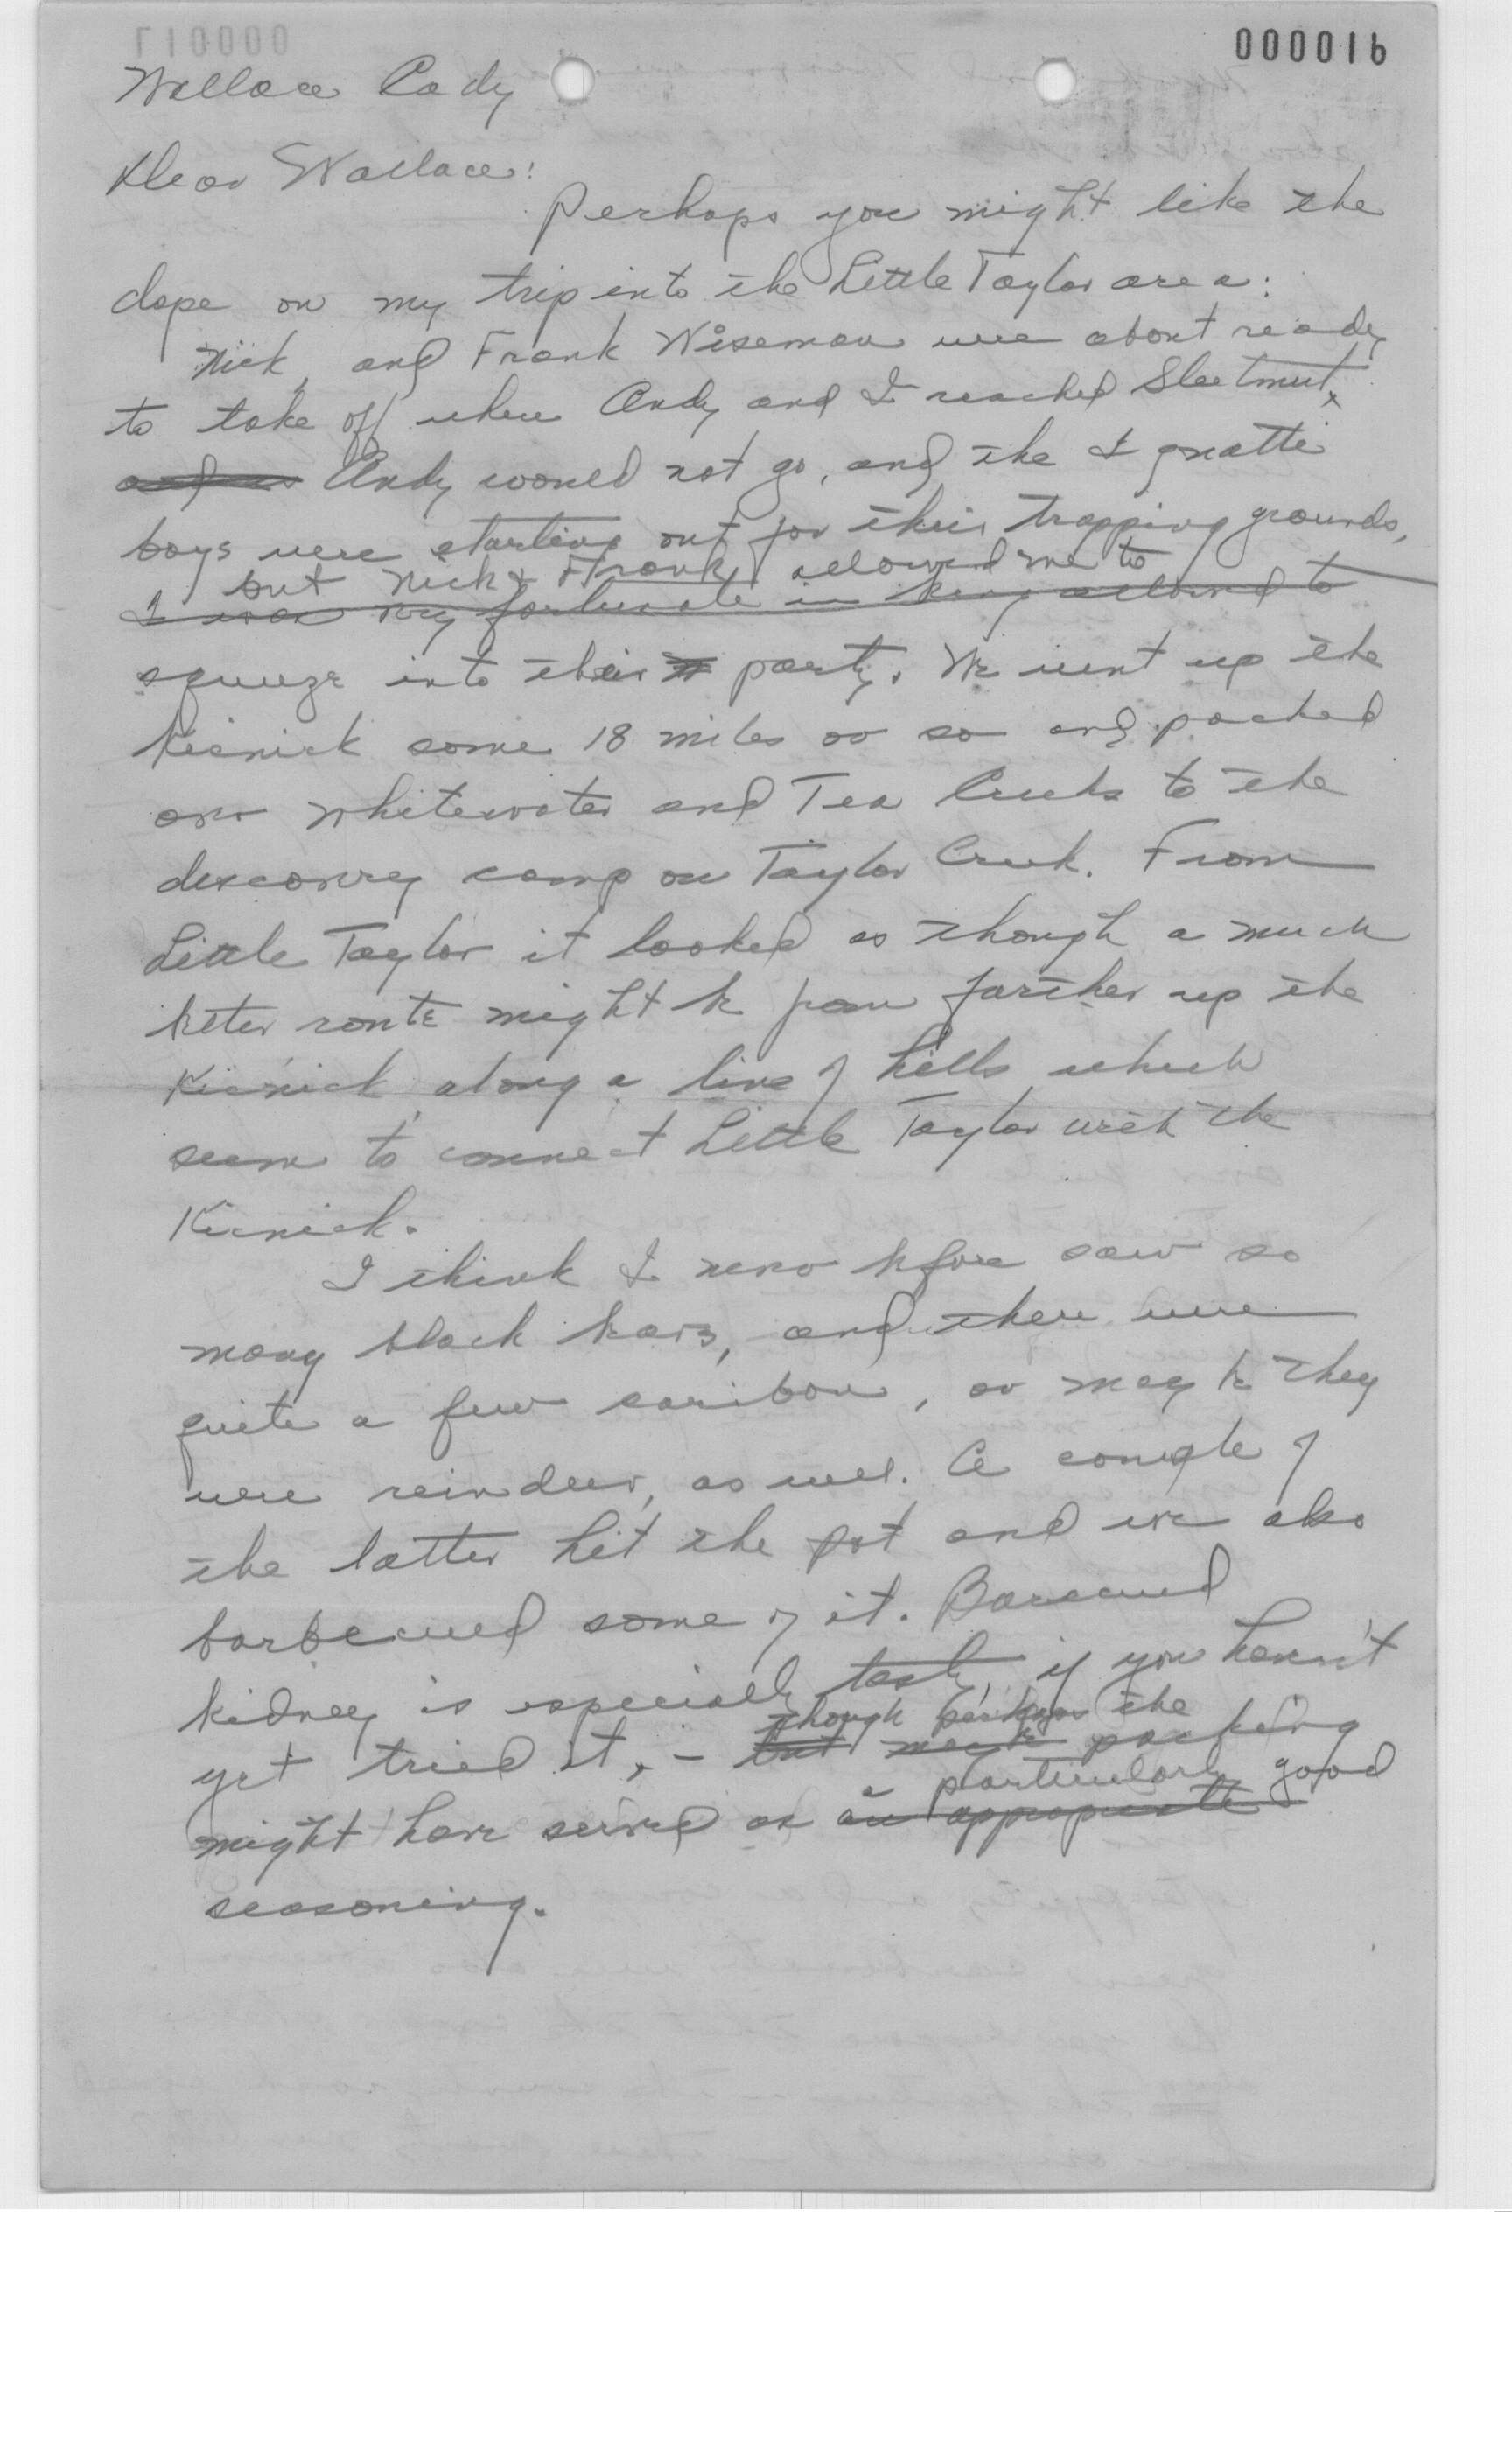 000016
Wallace Cady
Dear Wallace:
Perhaps you might like the
dope on my trip into the Little Taylor area:
Nick, and Frank Wiseman were about ready
to take off when Andy and I reached Sleetmut.
Andy would not go, and the Egnatti
boys were starting out for their trapping grounds,
but Nick & Frank allowed me to
I was very fortunate in being allowed to
squeeze into their party. We went up the
some 18 miles or so and packed
over Whitewater and Tea Creeks to the
discovery camp on Taylor Creek. From
Little Taylor it looked as though a much
better route might be from farther up the
along a line of hills which
seem to connect Little Taylor with the
I think I never before saw so
many black bears, and there were
quite a few caribou, or maybe they
were reindeer, as well. A couple of
the latter hit the pot and we also
barbecued some of it. Barecued
kidney is especially tasty, if you haven't
though perhaps the
yet tried it, - but maybe packing
a particularly good
might have served as an appropriate
seasoning.